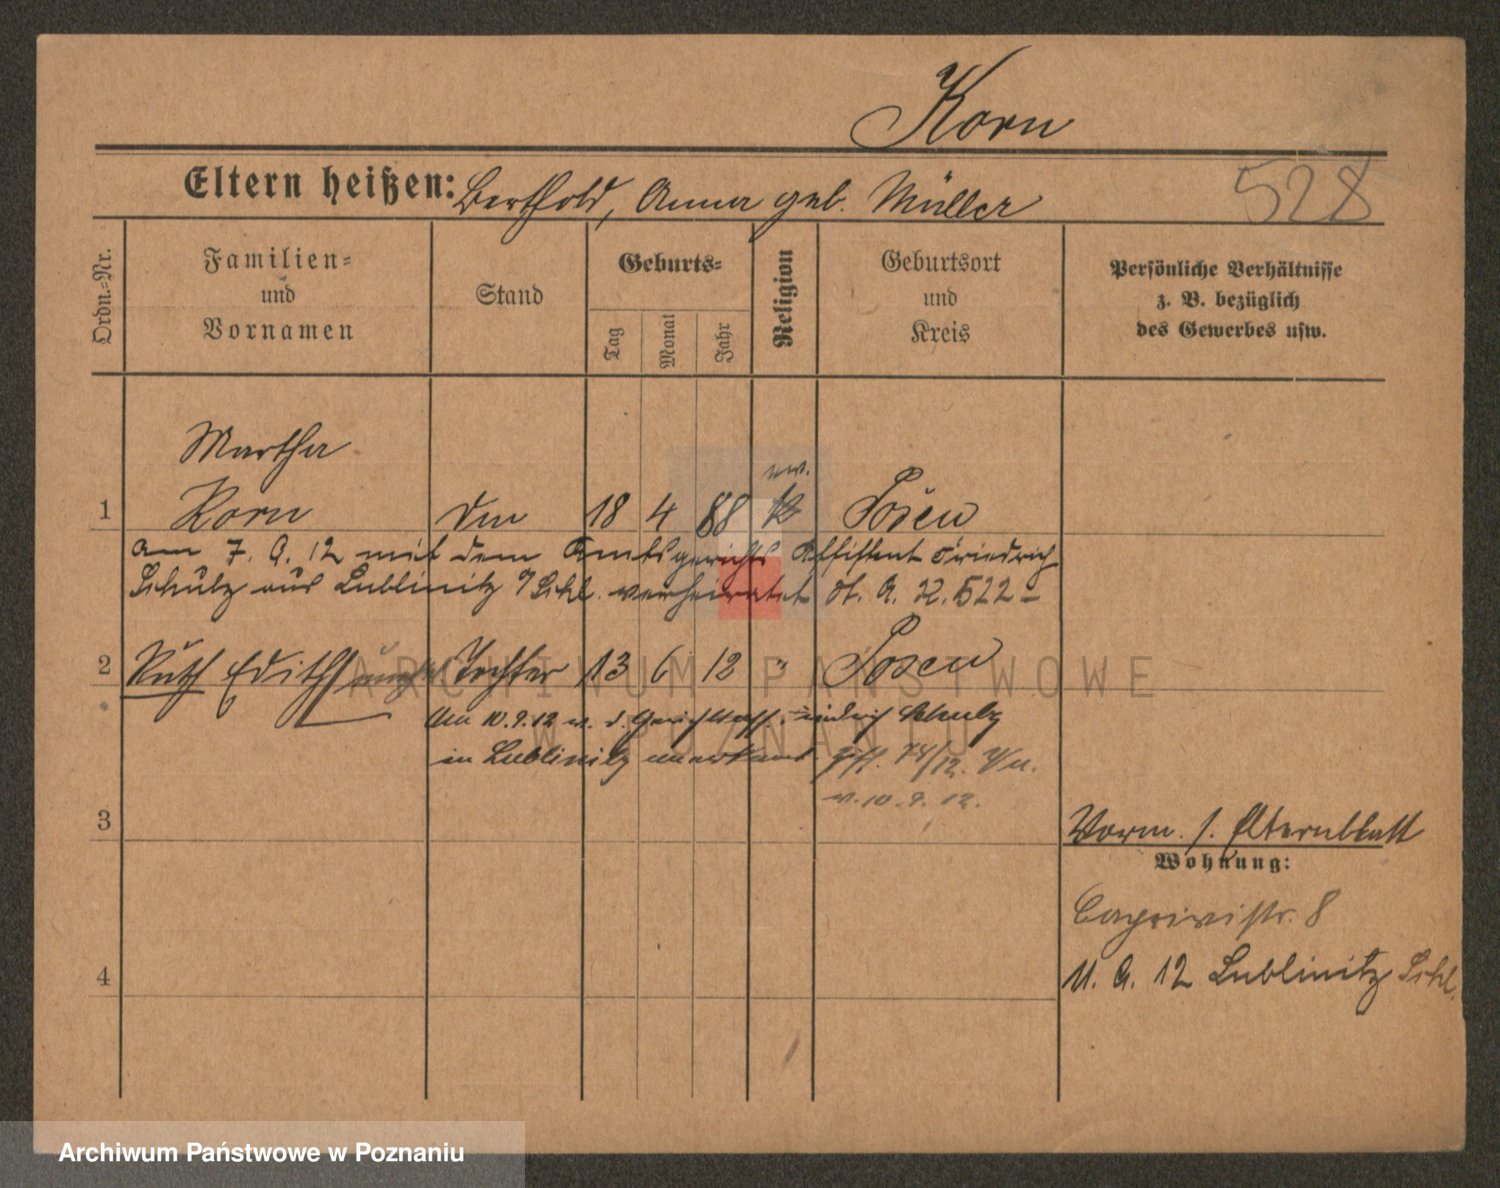 Korn
Eltern heißen: Berthold, Anna geb. Müller
528
Ordn.-Nr.
Familien-
und
Vornamen
Stand
Geburts-
Tag
Monat
Jahr
Religion
Geburtsort
und
Kreis
Persönliche Verhältnisse
z. B. bezüglich
des Gewerbes usw.
Martha
ev.
1 Korn 18 4 88 k Posen
am 7. 9. 12 mit dem Amtsgerichts Assistent Friedrich
Schulz aus Lublinitz O/Schl. verheiratet St. A. II. 522 –
2 Ruth Edith Tochter 13 6 12 " Posen
Am 10.9.12 v. d. Friedrich Schulz
in Lublinitz anerkannt 74/12.
v. 10. 9. 12.
3
Vorm. s. Elternblatt
Wohnung:
Caprivistr. 8
4
11. 9. 12 Lublinitz Schl.
ARCHIWUM PAŃSTWOWE
W POZNANIU
Archiwum Państwowe w Poznaniu